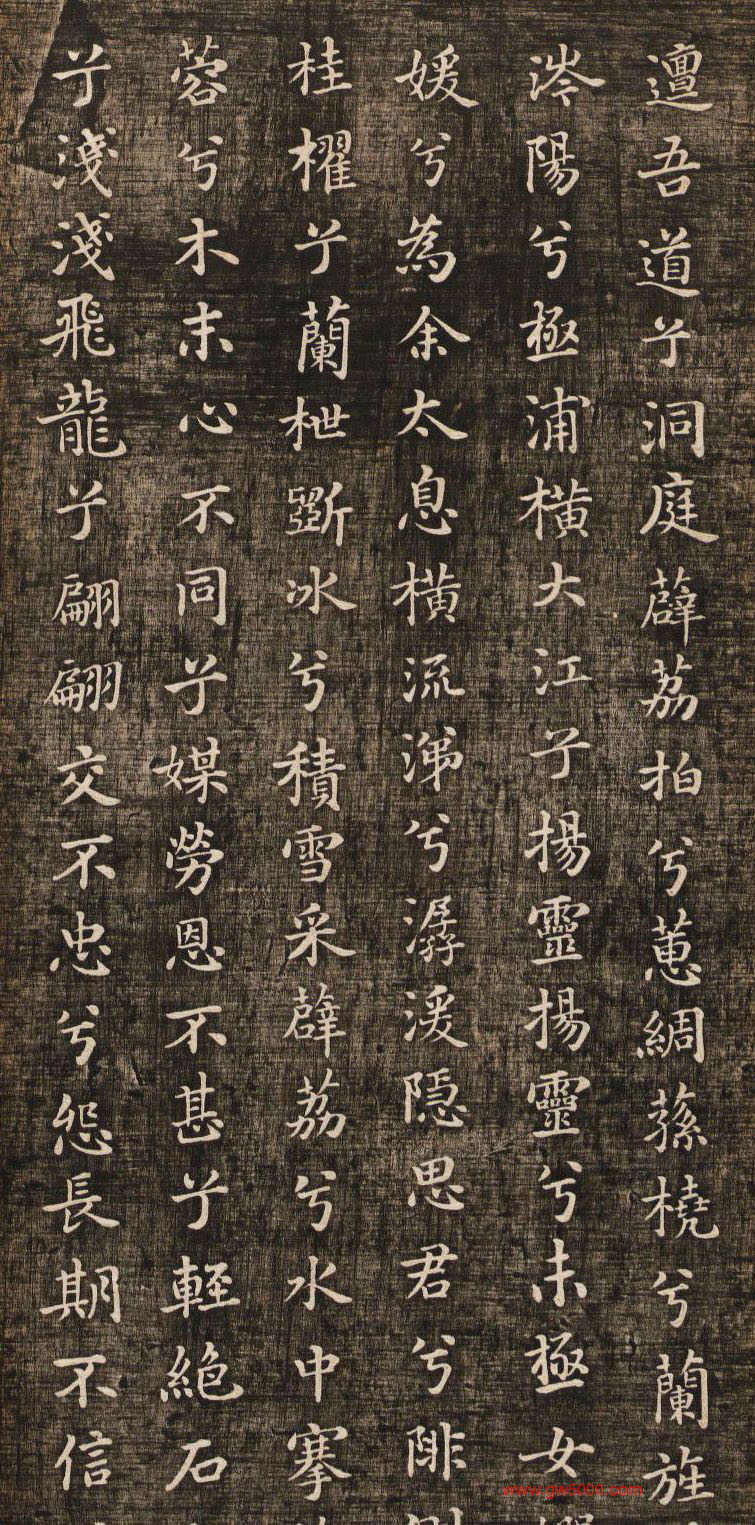 邅吾道兮洞庭薜荔拍兮蕙綢蓀橈兮蘭旌
涔陽兮極浦橫大江兮揚靈揚靈兮未極女
媛兮為余太息橫流涕兮潺湲隱思君兮陫
桂櫂兮蘭枻斲冰兮積雪采薜荔兮水中搴
蓉兮木末心不同兮媒勞恩不甚兮輕絕石
兮淺淺飛龍兮翩翩交不忠兮怨長期不信